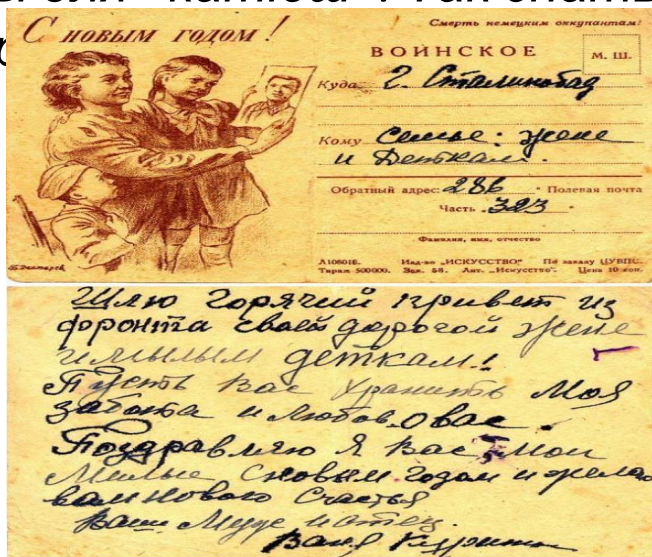 С НОВЫМ ГОДОМ!
Смерть немецким оккупантам!
ВОИНСКОЕ
М. Ш.
Куда г. Сталинабад
Кому Семье: жене
и Деткам.
Обратный адрес: 286 Полевая почта
Часть 323
Фамилия, имя, отчество
Изд-во „ИСКУССТВО“. По заказу ЦУВПС.
Тираж 500000. Зак. 58. Лит. „Искусство“. Цена 10 коп.
Шлю горячий привет из
фронта своей дорогой жене
и милым деткам!
Пусть вас хранить моя
забота и любов. о вас.
Поздравляю я вас мои
милые с новым годом и желаю
вам нового счастья
Ваш муж и отец.
Ваня